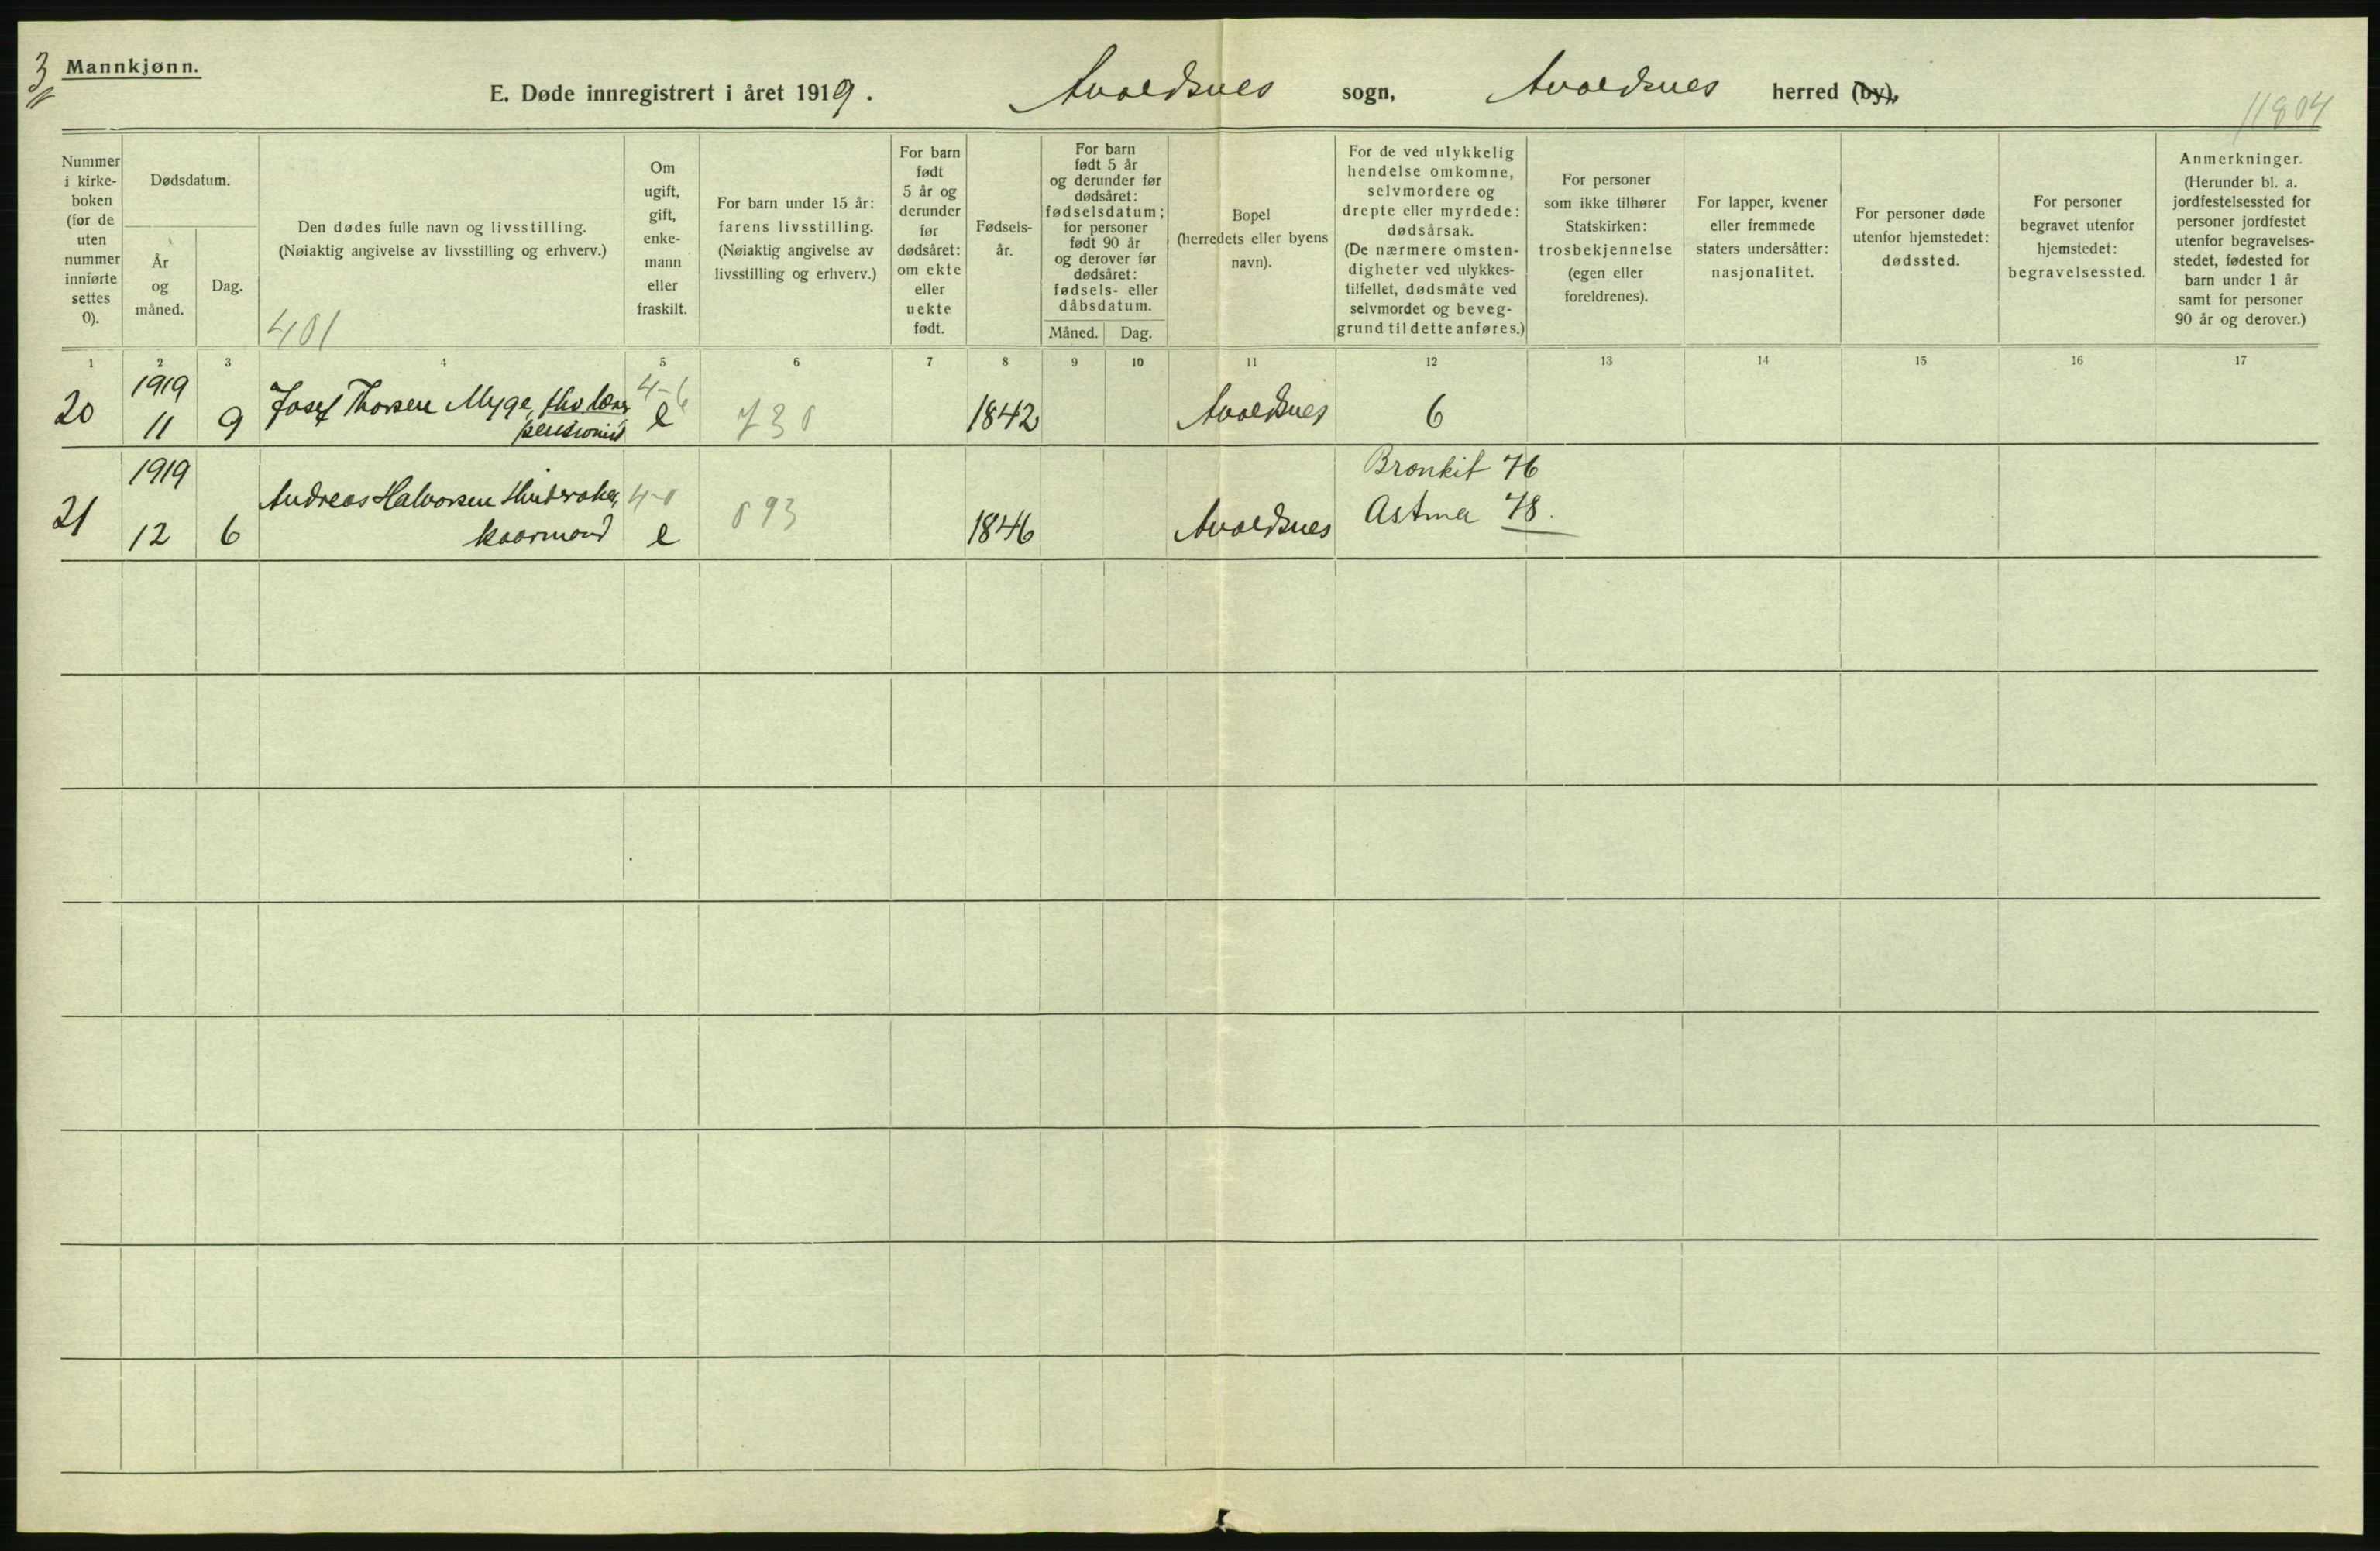 3
Mannkjønn.
E. Døde innregistrert i året 1919. Avaldsnes sogn, Avaldsnes herred (by),
11804
Nummer i kirke-boken (for de uten nummer innførte settes 0).
Dødsdatum.
År og måned.
Dag.
Den dødes fulle navn og livsstilling.
(Nøiaktig angivelse av livsstilling og erhverv.)
401
Om ugift, gift, enke-mann eller fraskilt.
For barn under 15 år: farens livsstilling. (Nøiaktig angivelse av livsstilling og erhverv.)
For barn født 5 år og derunder før dødsåret: om ekte eller uekte født.
Fødsels-år.
For barn født 5 år og derunder før dødsåret: fødselsdatum; for personer født 90 år og derover før dødsåret: fødsels- eller dåbsdatum.
Måned. Dag.
Bopel (herredets eller byens navn).
For de ved ulykkelig hendelse omkomne, selvmordere og drepte eller myrdede: dødsårsak. (De nærmere omsten-digheter ved ulykkes-tilfellet, dødsmåte ved selvmordet og beveg-grund til dette anføres.)
For personer som ikke tilhører Statskirken: trosbekjennelse (egen eller foreldrenes).
For lapper, kvener eller fremmede staters undersåtter: nasjonalitet.
For personer døde utenfor hjemstedet: dødssted.
For personer begravet utenfor hjemstedet: begravelsessted.
Anmerkninger. (Herunder bl. a. jordfestelsessted for personer jordfestet utenfor begravelses-stedet, fødested for barn under 1 år samt for personer 90 år og derover.)
1 2 3 4 5 6 7 8 9 10 11 12 13 14 15 16 17
1919 4-6
20 11 9 Josef Thorsen Myge, e 730 1842 Avaldsnes 6
pensionist
1919 Bronkit 76
Andreas Halvorsen 4-0 093 Astma 78.
21 12 6 kaarmand e 1846 Avaldsnes